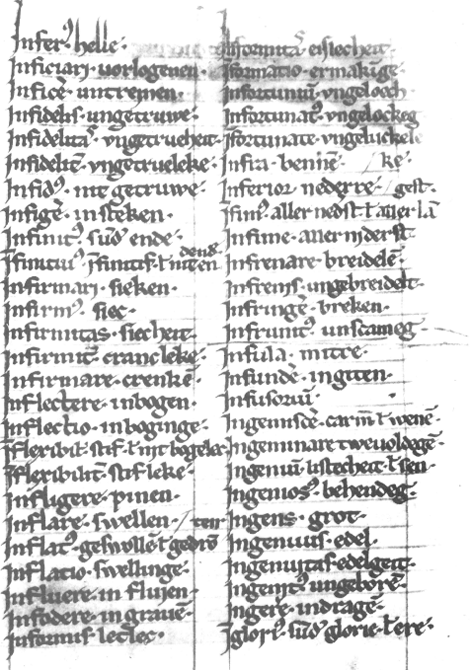 Infer᷒ · helle ·
Inficiari · vorlogenen ·
Inficė · untreynen ·
Infidelis · ungetruwe ·
Infidelita᷒ · vngetrucheit ·
Infidelit̄ · vngetrueleke ·
Infid᷒ · nit getruwe ·
Infigė · insteken ·
Infinit᷒ · sūd᷒ ende ·
Infirmari · sieken ·
Infirm᷒ · siec ·
Infirmitas · siecheit ·
Infirmit̄ · crancleke ·
Infirmare · crenkē ·
Inflectere · inbogen ·
Inflectio · inboginge ·
Īflexibilit̄ · stifleke ·
Infligere · pinen ·
Inflare · swellen ·
Inflat᷒ · geswollē ł gedrō
Inflatio · swellinge ·
Influere · in fluyen ·
Infodere · in grauē ·
Informis · lecles ·
Īformatio · ermakīge ·
Infortuniū · vngeloch
Infortunat᷒ · vngelockeg
Īfortunate · vngeluckele
Infra · bennē · / ke ·
Inferior · nederre · / gest ·
Īfim᷒ · aller nedst ł aller lā
Infime · aller nyderst
Infrenare · breidelē ·
Infrenis · ungebreidelt ·
Infringė · breken ·
Infrunit᷒ · unscameg ·
Infula · mitre ·
Infundė · ingiten ·
Infusoriū ·
Ingemiscė · carm̄ ł wenē
Ingeminare · tweuoldegē ·
Ingeniū · listecheit ł sen ·
Ingenios᷒ · behendeg ·
Ingens · grot ·
Ingenuus · edel ·
Ingenuitas · edelgeit ·
Ingenit᷒ · ungeborē ·
Ingere · indragē ·
Īglori᷒ · sūd᷒ glorie ł ere ·